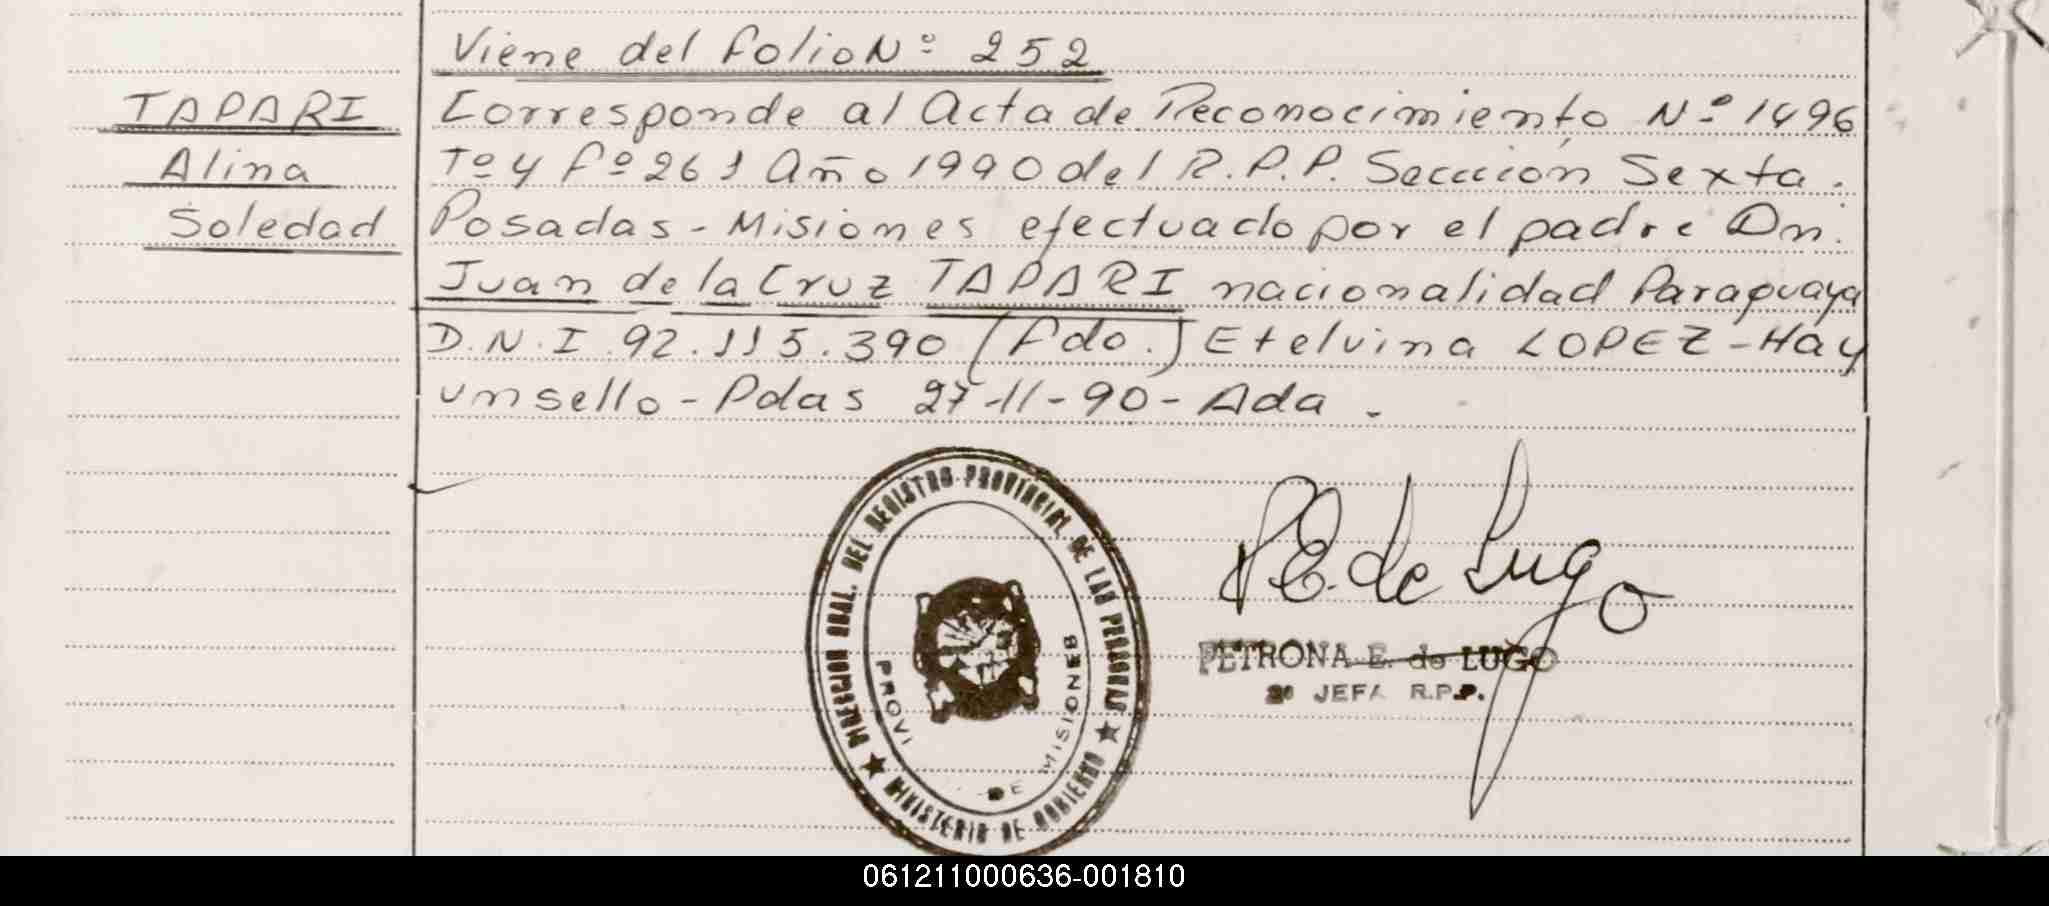 Viene del folio Nº 252
TAPARI
Alina
Soledad
Corresponde al Acta de Reconocimiento Nº 1496
Tº 4 fº 261 Año 1990 del R.P.P. Seccción Sexta.
Posadas - Misiones efectuado por el padre Dn.
Juan de la Cruz TAPARI nacionalidad Paraguaya
D.N.I. 92.115.390 (Fdo.) Etelvina LOPEZ - Hay
un sello - Pdas 27-11-90 - Ada.
DIRECCION GRAL. DEL REGISTRO PROVINCIAL DE LAS PERSONAS
MINISTERIO DE GOBIERNO
PROVI DE MISIONES
P E. de Lugo
PETRONA E. de LUGO
2º JEFA R.P.P.
061211000636-001810